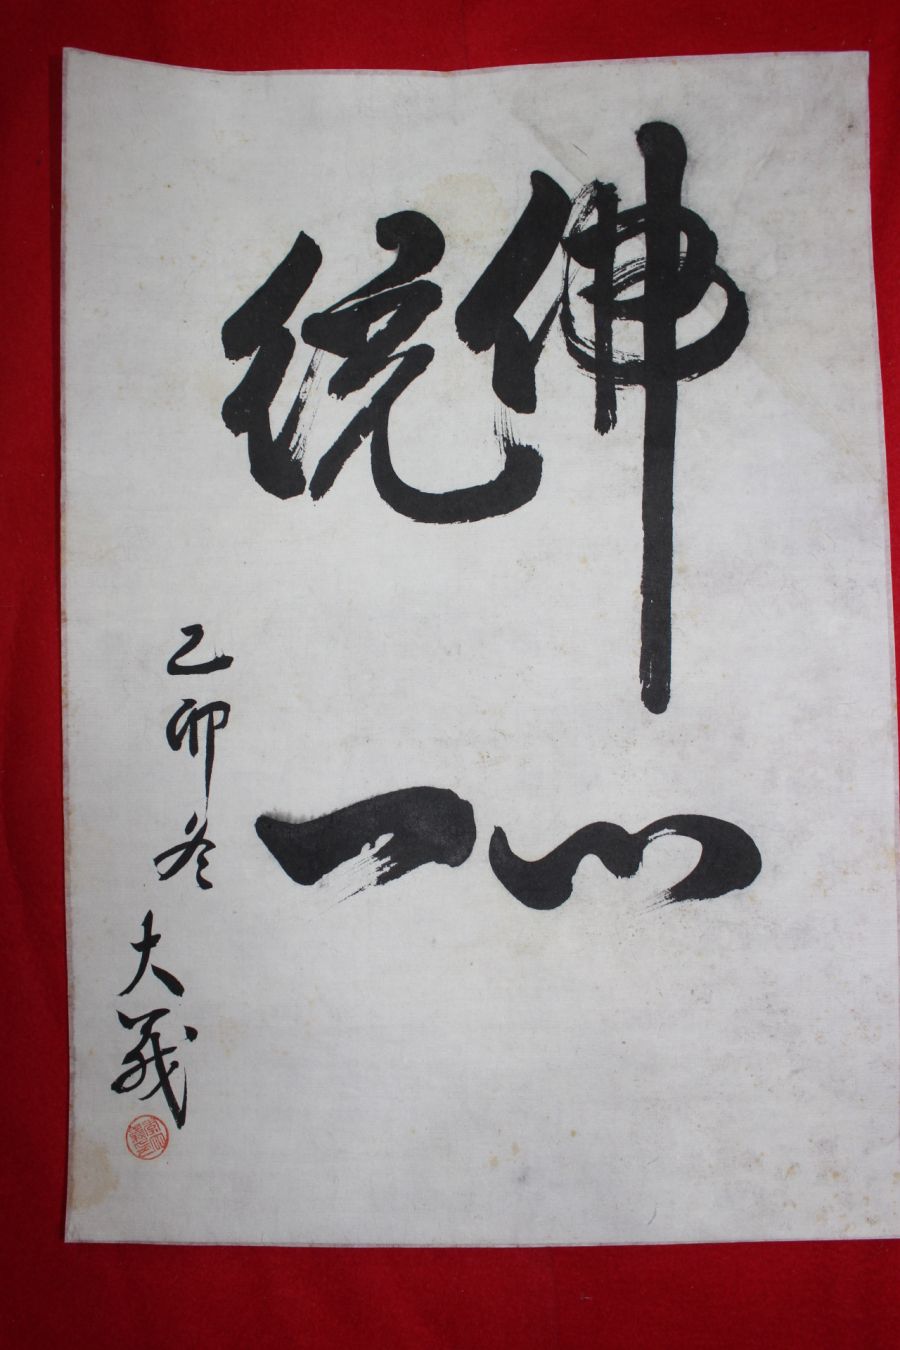 佛心
統一
乙卯冬 大義